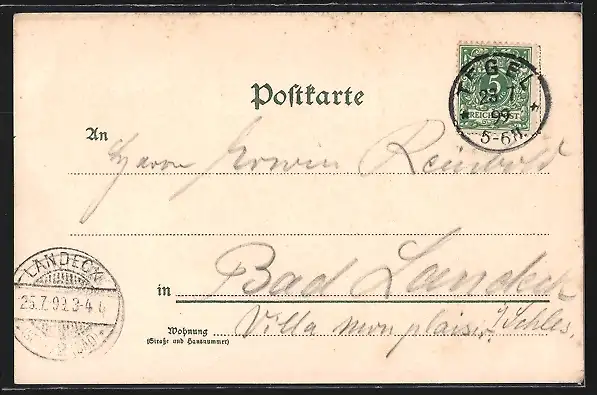 Postkarte
TEGEL
5
REICHSPOST
99
5-6N.
An
Herrn Erwin Reinbold
LANDECK
25.7.99.3-4
in
Bad Landeck
Wohnung
(Straße und Hausnummer)
Villa mon plaisir, i/Schles.